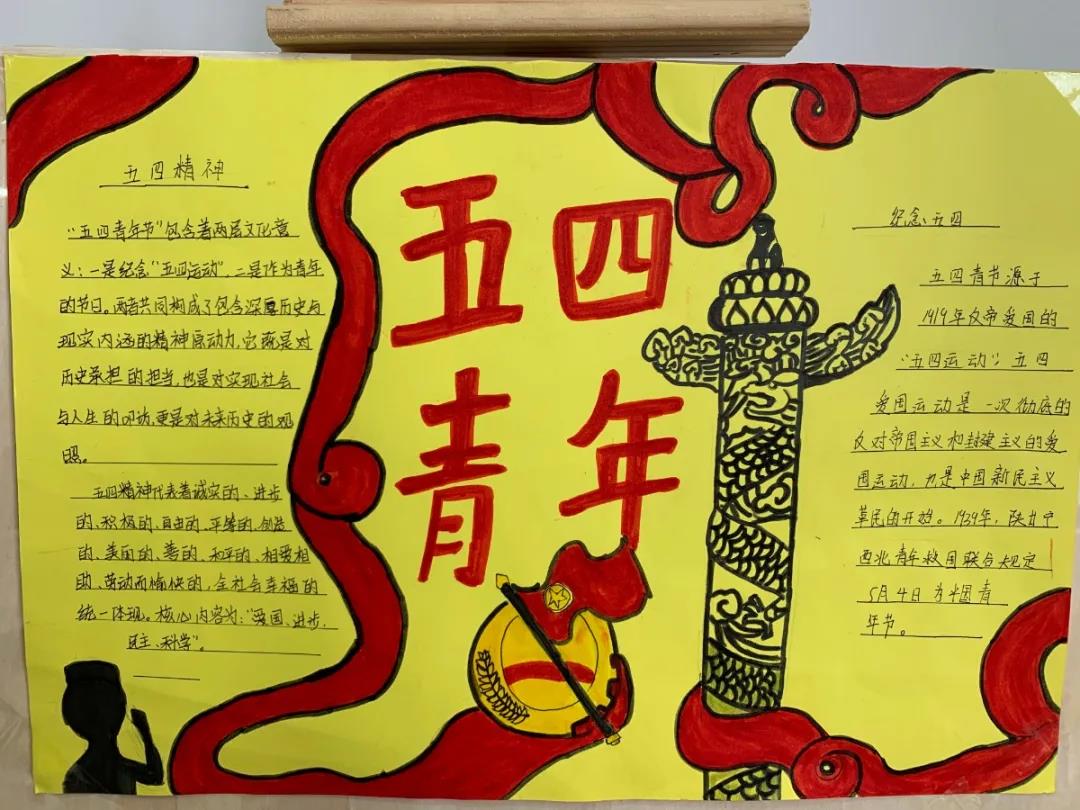 五四精神
"五四青年节"包含着两层文化意
义：一是纪念"五四运动"，二是作为青年
的节日。两者共同构成了包含深厚历史与
现实内涵的精神原动力，它既是对
历史承担的担当，也是对实现社会
与人生的叩访，更是对未来历史的观
照。
五四精神代表着诚实的、进步
的、积极的、自由的、平等的、创造
的、美丽的、善的、和平的、相爱相
助、劳动而愉快的，全社会幸福的
统一体现。核心内容为："爱国、进步，
民主、科学"。
五四
青年
纪念五四
五四青节源于
1919年反帝爱国的
"五四运动"，五四
爱国运动是一次彻底的
反对帝国主义和封建主义的爱
国运动，也是中国新民主义
革民的开始。1939年，陕甘宁
西北青年救国联合规定
5月4日为中国青
年节。